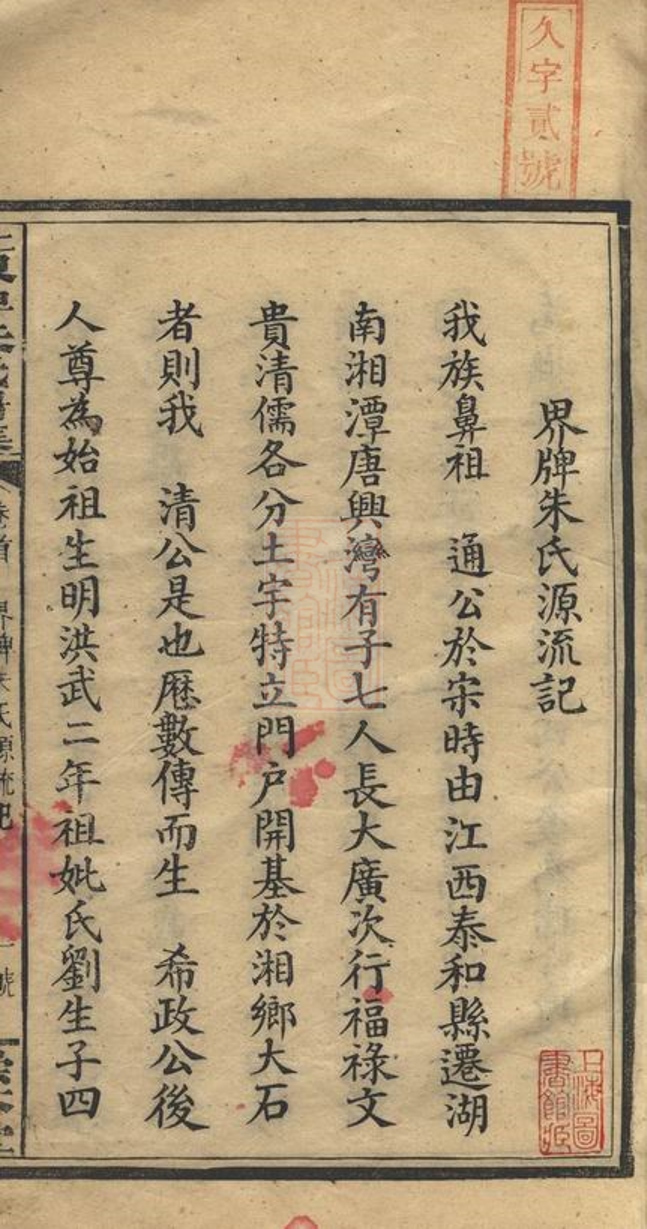 久字貳號
界牌朱氏源流記
我族鼻祖　通公於宋時由江西泰和縣遷湖
南湘潭唐興灣有子七人長大廣次行福祿文
貴清儒各分土宇特立門户開基於湘鄉大石
者則我　清公是也歷數傳而生　希政公後
人尊為始祖生明洪武二年祖妣氏劉生子四
卷首　界牌朱氏源流記
上海圖書館藏